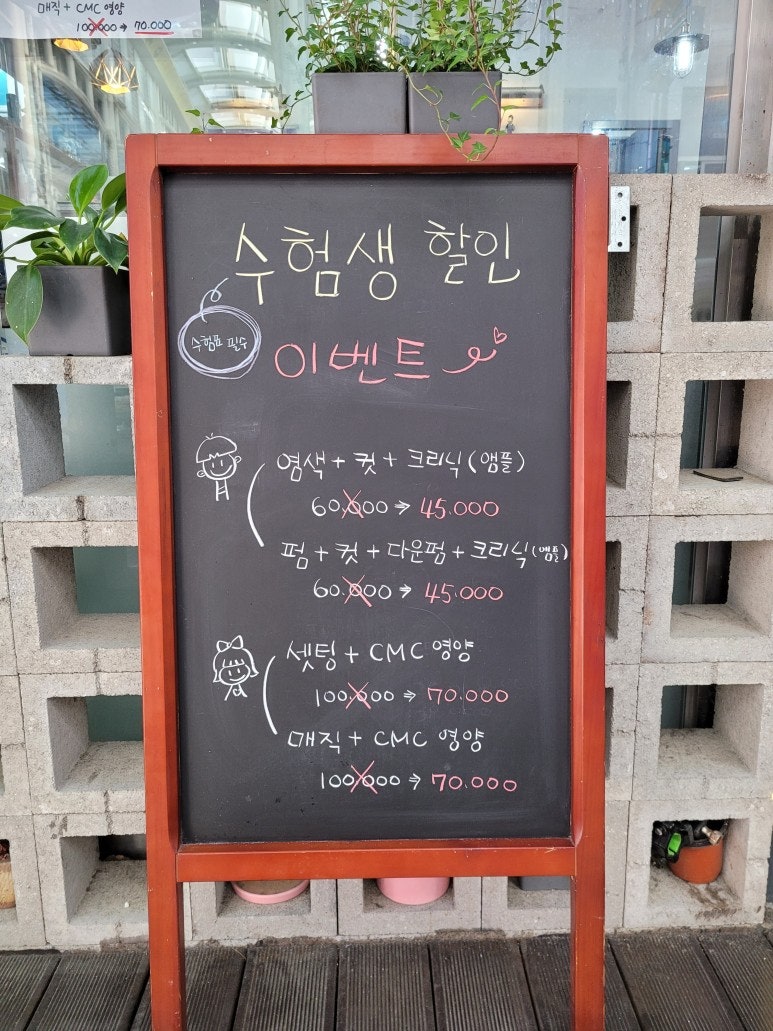 매직 + CMC 영양
100.000 → 70.000
수험생 할인
수험표 필수
이벤트
염색 + 컷 + 크리닉 (앰플)
60.000 → 45.000
펌 + 컷 + 다운펌 + 크리닉 (앰플)
60.000 → 45.000
셋팅 + CMC 영양
100.000 → 70.000
매직 + CMC 영양
100.000 → 70.000